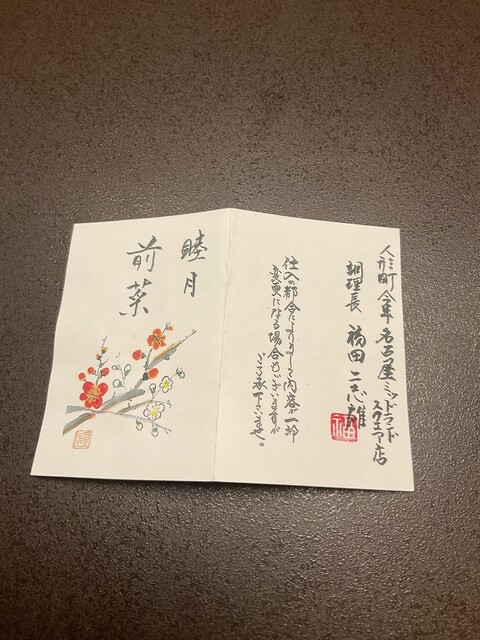 人形町今半 名古屋ミッドランド
スクエア店
調理長 福田二志雄
仕入の都合によりまして内容が一部
変更になる場合もございますが
ご了承下さいませ。
睦月
前菜